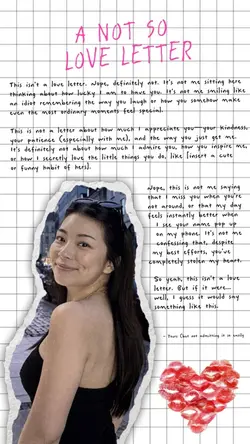 A NOT SO
LOVE LETTER
This isn't a love letter. Nope, definitely not. It's not me sitting here
thinking about how lucky I am to have you. It's not me smiling like
an idiot remembering the way you laugh or how you somehow make
even the most ordinary moments feel special.
This is not a letter about how much I appreciate you—your kindness,
your patience (especially with me), and the way you just get me.
It's definitely not about how much I admire you, how you inspire me,
or how I secretly love the little things you do, like [insert a cute
or funny habit of hers].
Nope, this is not me saying
that I miss you when you're
not around, or that my day
feels instantly better when
I see your name pop up
on my phone. It's not me
confessing that, despite
my best efforts, you've
completely stolen my heart.
So yeah, this isn't a love
letter. But if it were…
well, I guess it would say
something like this.